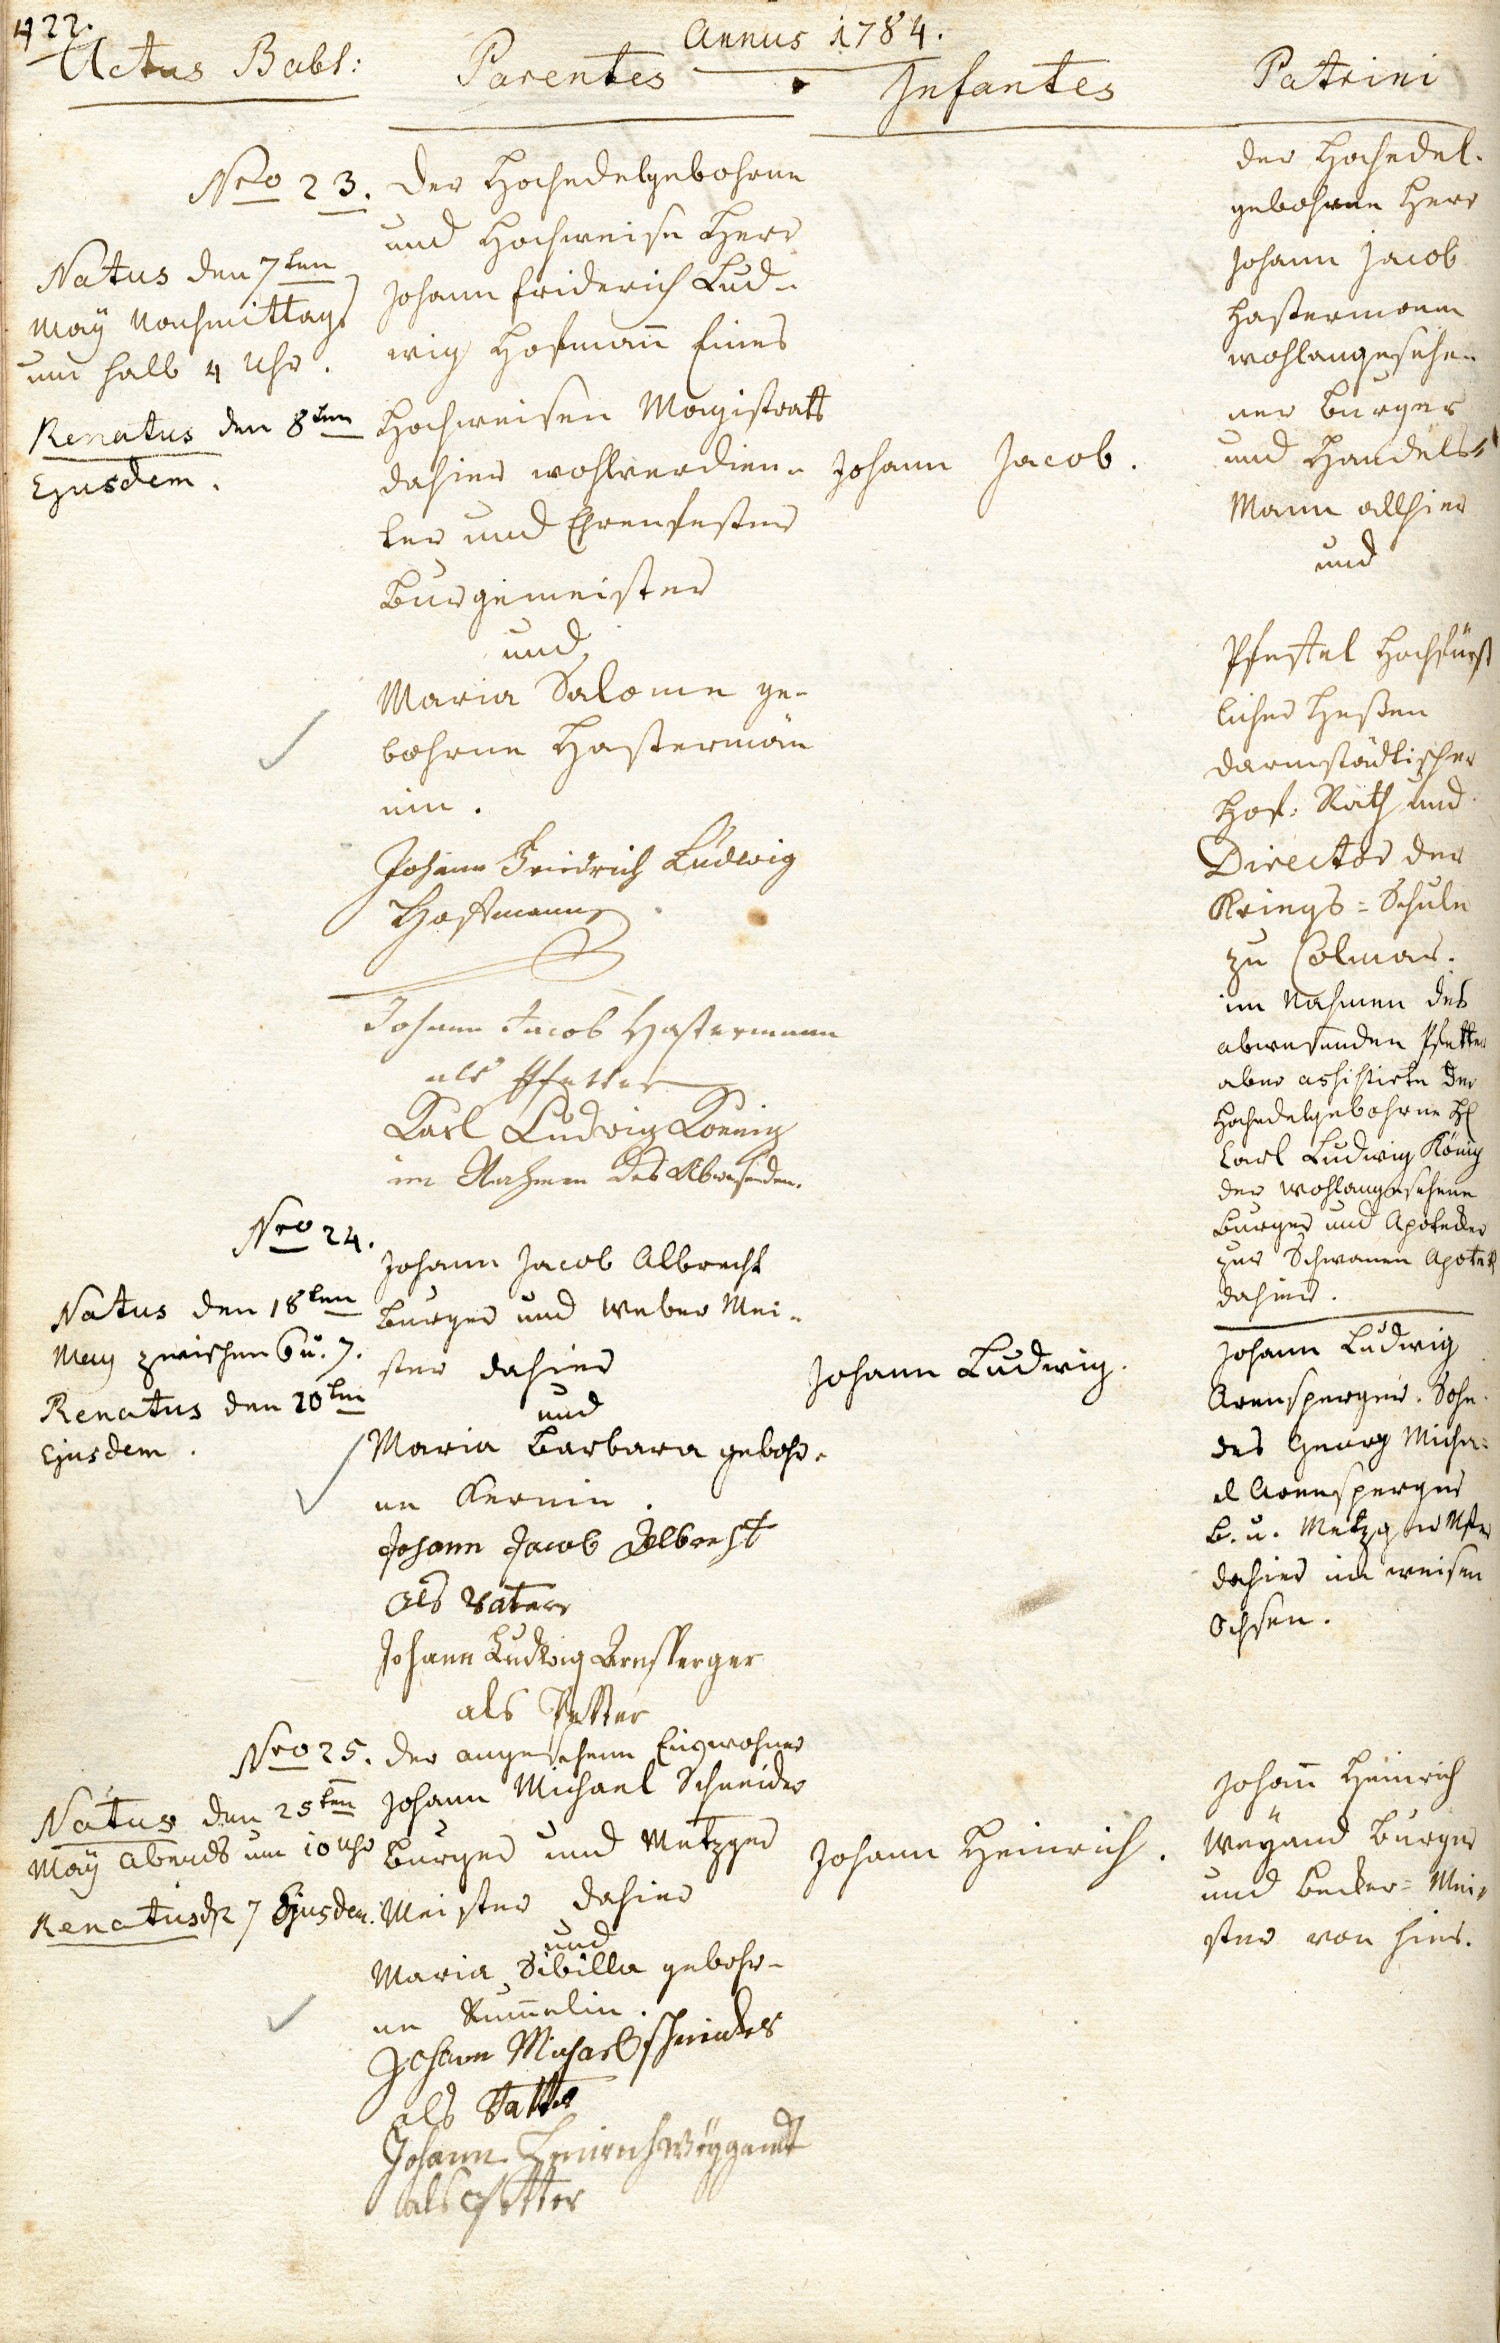 422.
Annus 1784.
Actus Babt:
Parentes
Infantes
Patrini
Nro 23.
Natus den 7ten
May Nachmittags
um halb 4 Uhr.
Renatus den 8ten
Ejusdem.
Der Hochedelgebohrne
und Hochweise Herr
Johann Friderich Lud-
wig Hofmann Eines
Hochweisen Magistrats
dahier wohlverdien-
ter und Ehrenfester
Burgemeister
und
Maria Salome ge-
bohrne Hastermän
nin.
Johann Friedrich Ludwig
Hoffmann
Johann Jacob Hastermann
als Pfetter
Karl Ludwig Koenig
im Nahmen des Abwesenden.
Johann Jacob.
der Hochedel-
gebohrne Herr
Johann Jacob
Hastermann
wohlangesehe-
ner Burger
und Handels-
Mann allhier
und
Pfeffel Hochfürst
licher Heßen
darmstädtischer
Hof: Rath und
Director der
Kriegs=Schule
zu Colmar.
im Nahmen des
abwesenden Pfetter
aber assistirte der
Hochedelgebohrne H
Carl Ludwig König
der wohlangesehene
Burger und Apotecker
zur Schwanen Apotek
dahier.
Nro 24.
Natus den 18ten
May zwischen 6 u. 7.
Renatus den 20ten
Ejusdem.
Johann Jacob Albrecht
Burger und Weber Mei-
ster dahier
und
Maria Barbara gebohr-
ne Kernin.
Johann Jacob Albrecht
als Vater
Johann Ludwig Arnsperger
als Petter
Johann Ludwig.
Johann Ludwig
Arensperger. Sohn
des Georg Micha-
el Arensperger
B. u. Metzger Mster
dahier im weisen
Ochsen.
Nro 25.
Natus den 25ten
May Abends um 10 Uhr
Renatus d 27 Ejusdem.
der angesehene Einwohner
Johann Michael Schneider
Burger und Metzger
Meister dahier
und
Maria Sibilla gebohr-
ne Rummelin.
Johann Michael Schneider
als Vatter
Johann Heinrich Weygandt
als Pfetter
Johann Heinrich.
Johann Heinrich
Weyand Burger
und Becker=Mei-
ster von hier.